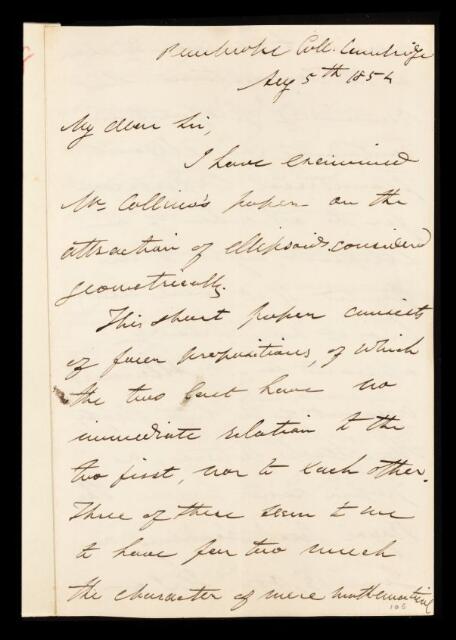 Pembroke Coll. Cambridge
Aug 5th 1854
My dear Sir,
I have examined
Mr Collins's paper on the
attraction of ellipsoids considered
geometrically.
This short paper consists
of four propositions, of which
the two last have no
immediate relation to the
two first, nor to each other.
Three of these seem to me
to have far too much
the character of mere mathematical
105